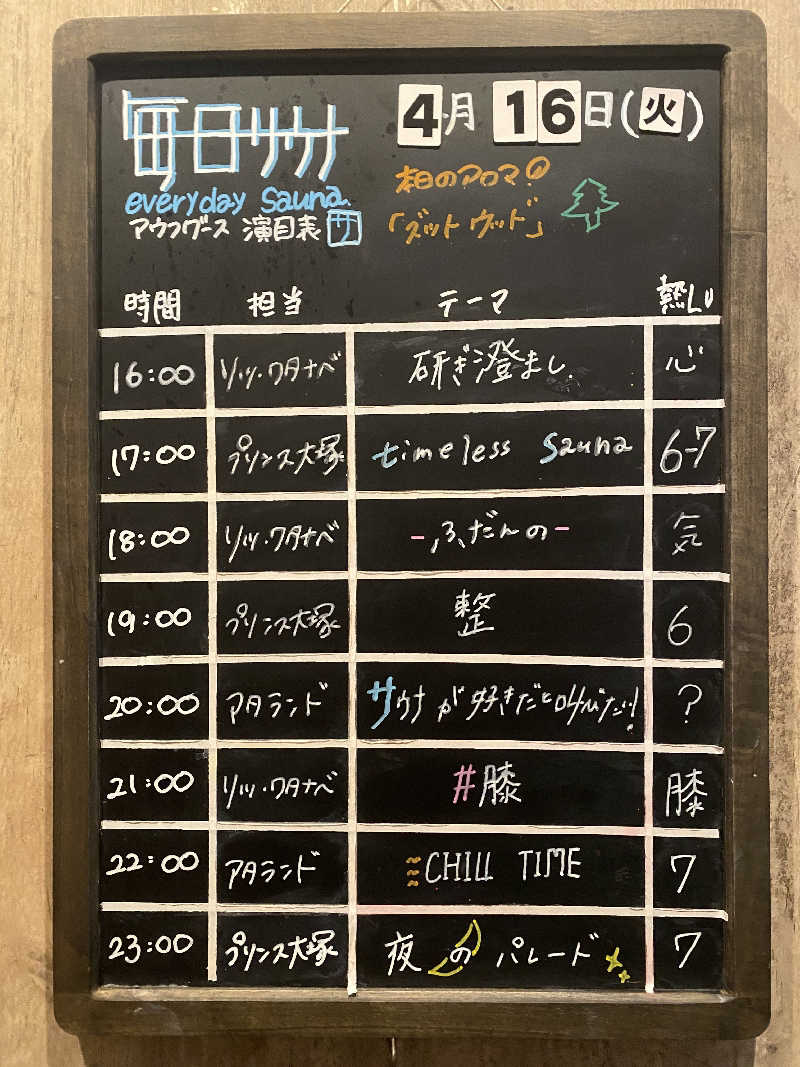 毎日サウナ
4月 16日(火)
everyday Sauna.
アウフグース 演目表 サ
本日のアロマ!
「ズットウッド」
時間 担当 テーマ 熱レ
16:00 リッツ・ワタナベ 研ぎ澄まし 心
17:00 プリンス大塚 timeless Sauna 6-7
18:00 リッツ・ワタナベ -ふだんの- 気
19:00 プリンス大塚 整 6
20:00 アタランド サウナが好きだと叫びたい! ?
21:00 リッツ・ワタナベ #膝 膝
22:00 アタランド CHILL TIME 7
23:00 プリンス大塚 夜のパレード 7